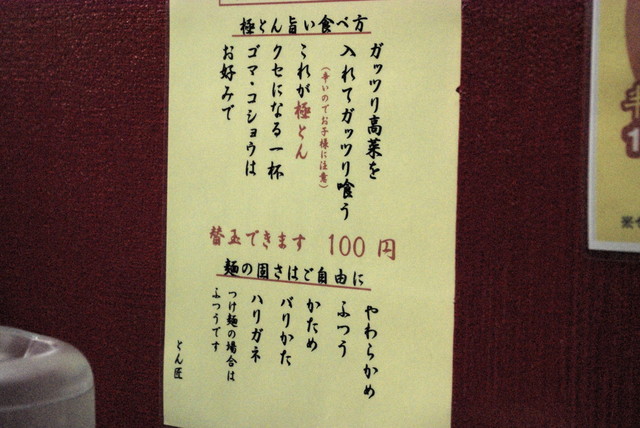 極とん旨い食べ方
ガッツリ高菜を
入れてガッツリ喰う
(辛いのでお子様に注意)
これが極とん
クセになる一杯
ゴマ・コショウは
お好みで
替玉できます 100円
麺の固さはご自由に
やわらかめ
ふつう
かため
バリかた
ハリガネ
つけ麺の場合は
ふつうです
とん匠